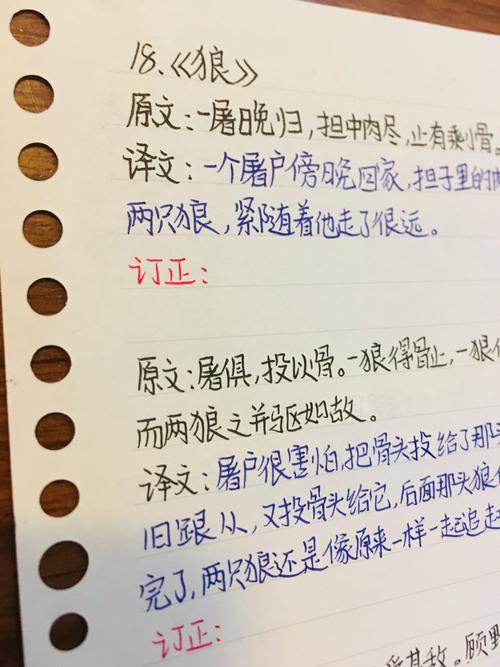 18.《狼》
原文:一屠晚归,担中肉尽,止有剩骨。
译文:一个屠户傍晚回家,担子里的肉
两只狼,紧随着他走了很远。
订正:
原文:屠惧,投以骨。一狼得骨止,一狼仍
而两狼之并驱如故。
译文:屠户很害怕,把骨头投给了那头
旧跟从,又投骨头给它,后面那头狼
完了,两只狼还是像原来一样一起追赶
订正:
其敌。顾野